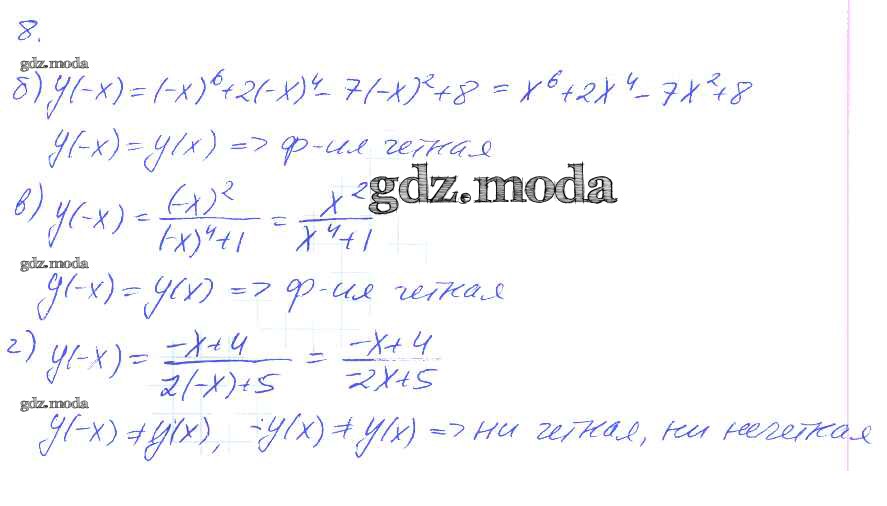 8.
gdz.moda
б) y(-x) = (-x)⁶+2(-x)⁴-7(-x)²+8 = x⁶+2x⁴-7x²+8
y(-x) = y(x) => ф-ия четная
gdz.moda
в) y(-x) = (-x)²/((-x)⁴+1) = x²/(x⁴+1)
gdz.moda
y(-x) = y(x) => ф-ия четная
г) y(-x) = (-x+4)/(2(-x)+5) = (-x+4)/(-2x+5)
gdz.moda
y(-x) ≠ y(x), -y(x) ≠ y(x) => ни четная, ни нечетная